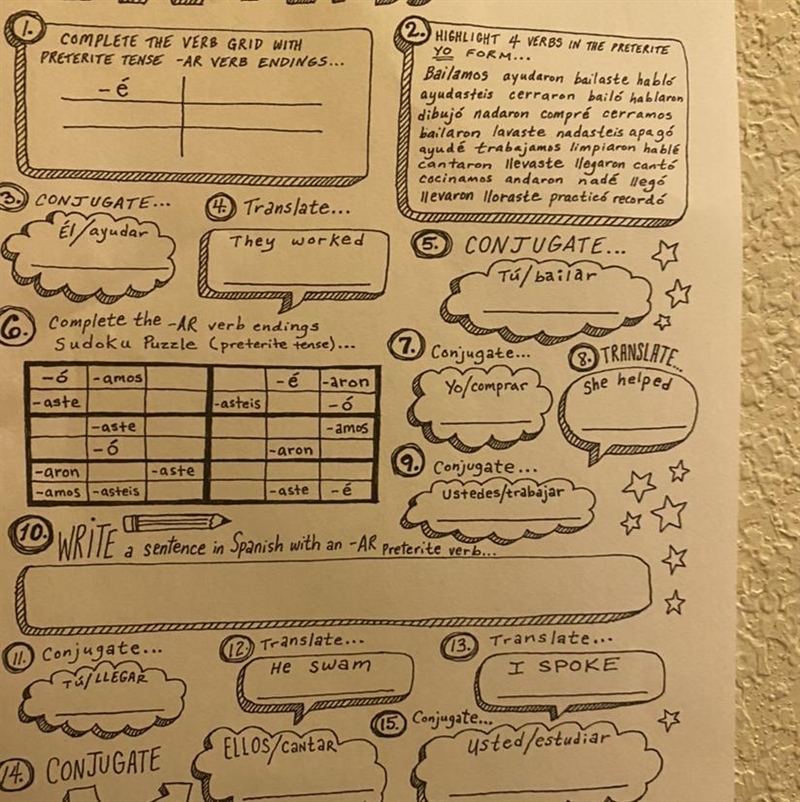 1.
COMPLETE THE VERB GRID WITH
PRETERITE TENSE -AR VERB ENDINGS...
-é
2. HIGHLIGHT 4 VERBS IN THE PRETERITE
YO FORM...
Bailamos ayudaron bailaste habló
ayudasteis cerraron bailó hablaron
dibujó nadaron compré cerramos
bailaron lavaste nadasteis apagó
ayudé trabajamos limpiaron hablé
cantaron llevaste llegaron cantó
cocinamos andaron nadé llegó
llevaron lloraste practicó recordó
3. CONJUGATE...
Él/ayudar
4. Translate...
They worked
5. CONJUGATE...
Tú/bailar
6. Complete the -AR verb endings
Sudoku Puzzle (preterite tense)...
-ó -amos -é -aron
-aste -asteis -ó
-aste -amos
-ó -aron
-aron -aste
-amos -asteis -aste -é
7. Conjugate...
Yo/comprar
8. TRANSLATE...
She helped
9. Conjugate...
Ustedes/trabajar
10. WRITE a sentence in Spanish with an -AR preterite verb...
11. Conjugate...
Tú/LLEGAR
12. Translate...
He swam
13. Translate...
I SPOKE
14. CONJUGATE
ELLOS/cantar
15. Conjugate...
Usted/estudiar